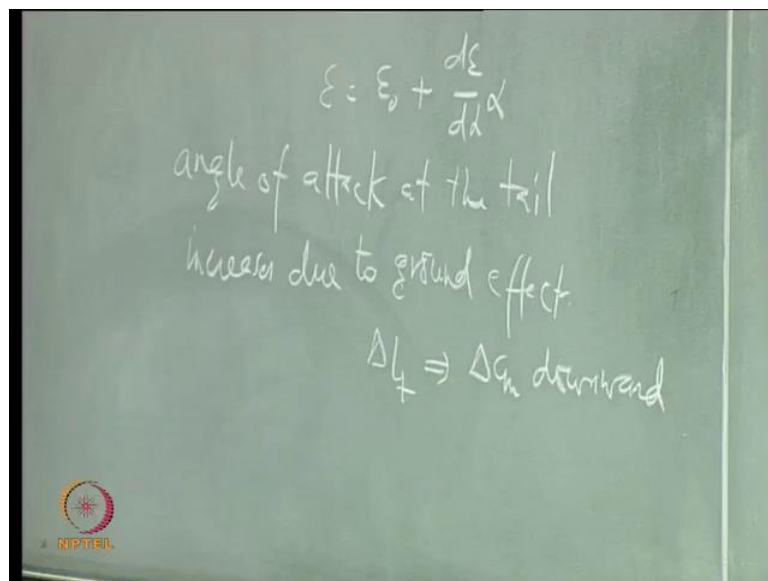 ε = ε₀ + dε/dα α
angle of attack at the tail
increases due to ground effect.
ΔL_t ⇒ ΔC_m downward
NPTEL